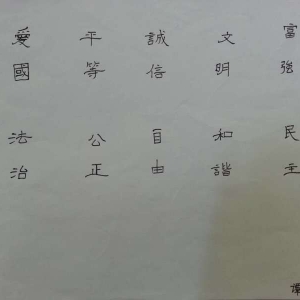 富強民主
文明和諧
誠信自由
平等公正
愛國法治